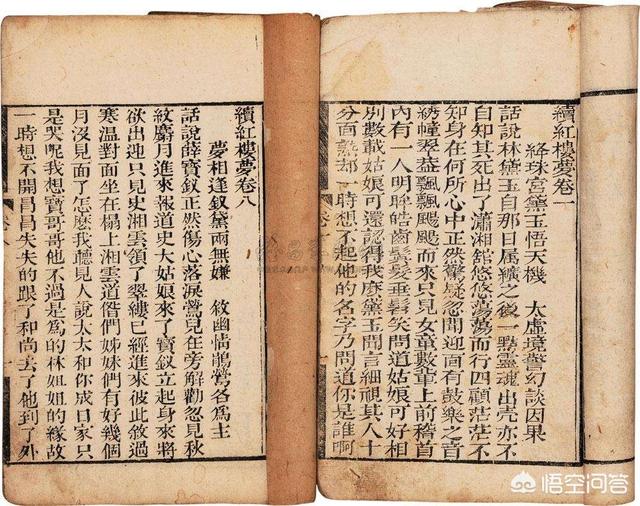 續紅樓夢卷一
絳珠宮黛玉悟天機 太虛境警幻談因果
話說林黛玉自那日属纊之後一點靈魂出壳亦不
自知其死出了瀟湘舘悠悠蕩蕩而行四顧茫茫不
知身在何所心中正然驚疑忽聞迎面有鼓樂之音
綉幢翠葢飄飄颺颺而來只見女童數輩上前稽首
內有一人明眸皓齒鬒髮垂髫笑問道姑娘可好相
別數載姑娘可還認得我麽黛玉聞言細視其人十
分面熟却一時想不起他的名字乃問道你是誰啊
續紅樓夢卷八
夢相逢釵黛兩無嫌 敘幽情鵲鶯名為主
話說薛寶釵正然傷心落淚鶯兒在旁解勸忽見秋
紋麝月進來報道史大姑娘來了寶釵立起身來將
欲出迎只見史湘雲領了翠縷已經進來彼此敘過
寒溫對面坐在榻上湘雲道偺們姊妹們有好幾個
月沒見面了怎麽我聽見人說太太和你成日家只
是哭呢我想寶哥哥他不過是為的林姐姐的緣故
一時想不開昌昌失失的跟了和尚去了他到了外
悟空问答